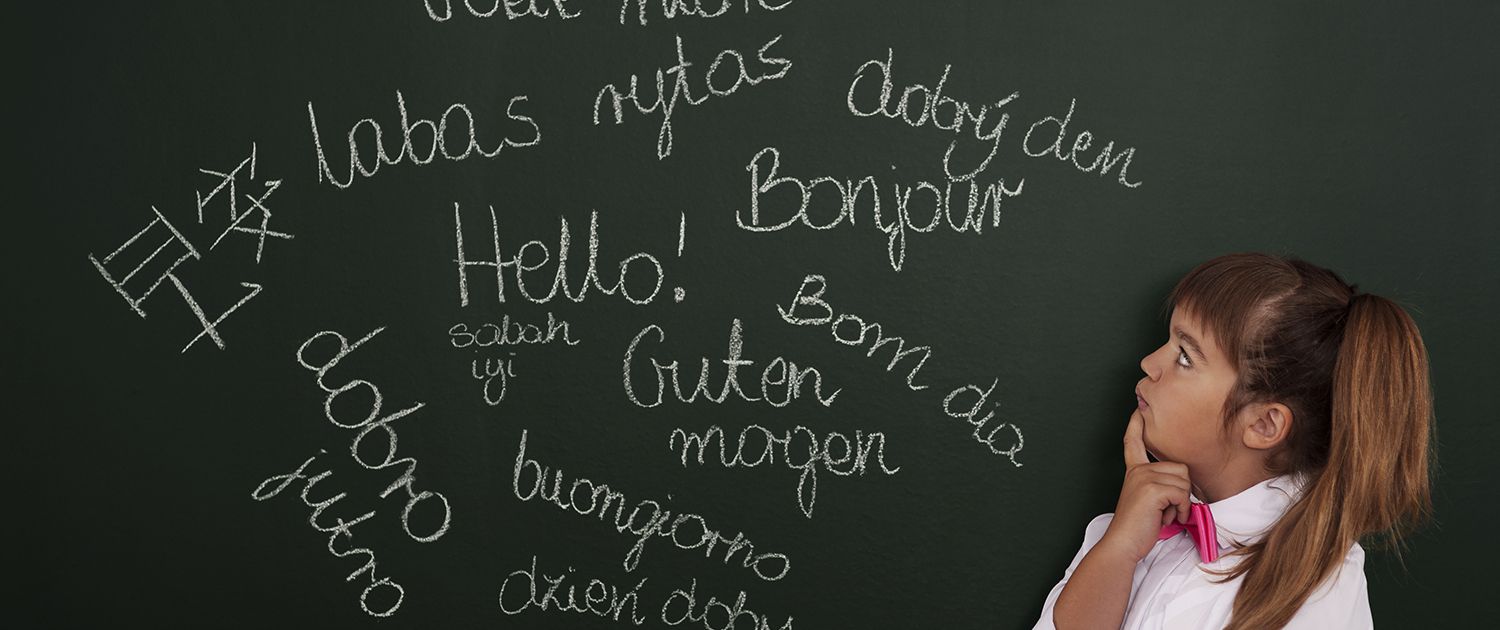 labas rytas
dobrý den
早安
Bonjour
Hello!
sabah
iyi
Bom dia
Guten
magen
dobro
jutro
buongiorno
dzień dobry